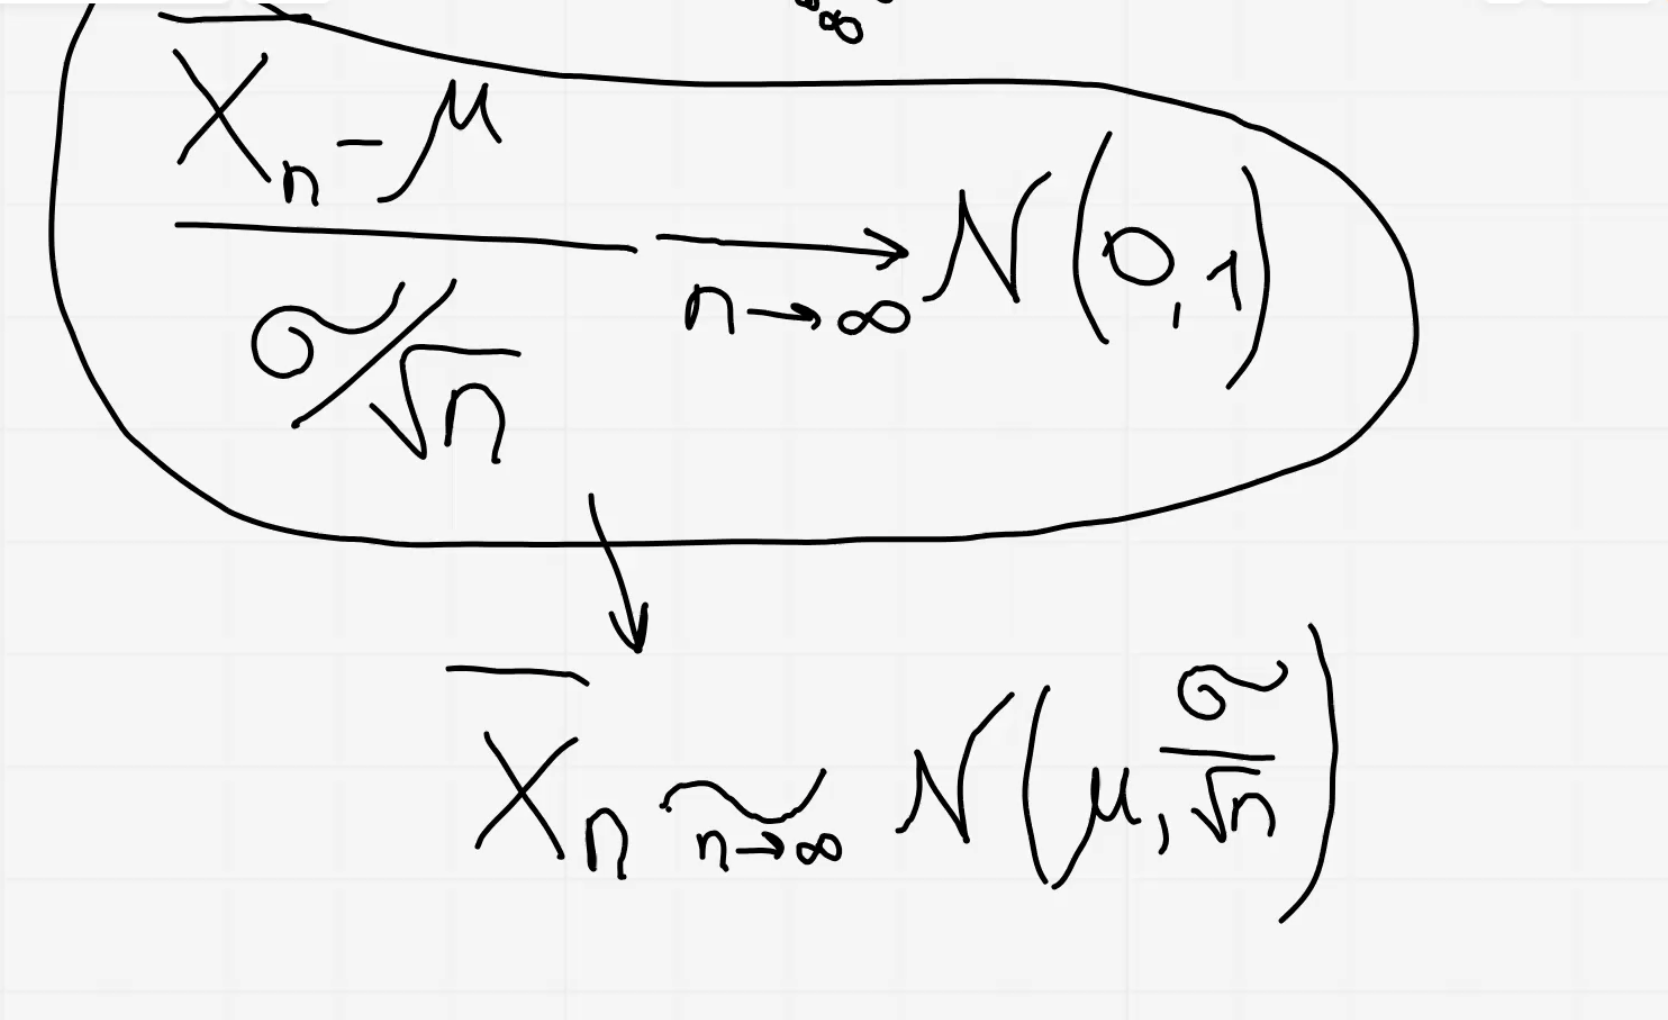 X̄ₙ - μ
σ/√n → n→∞ N(0,1)
X̄ₙ ~ n→∞ N(μ, σ/√n)